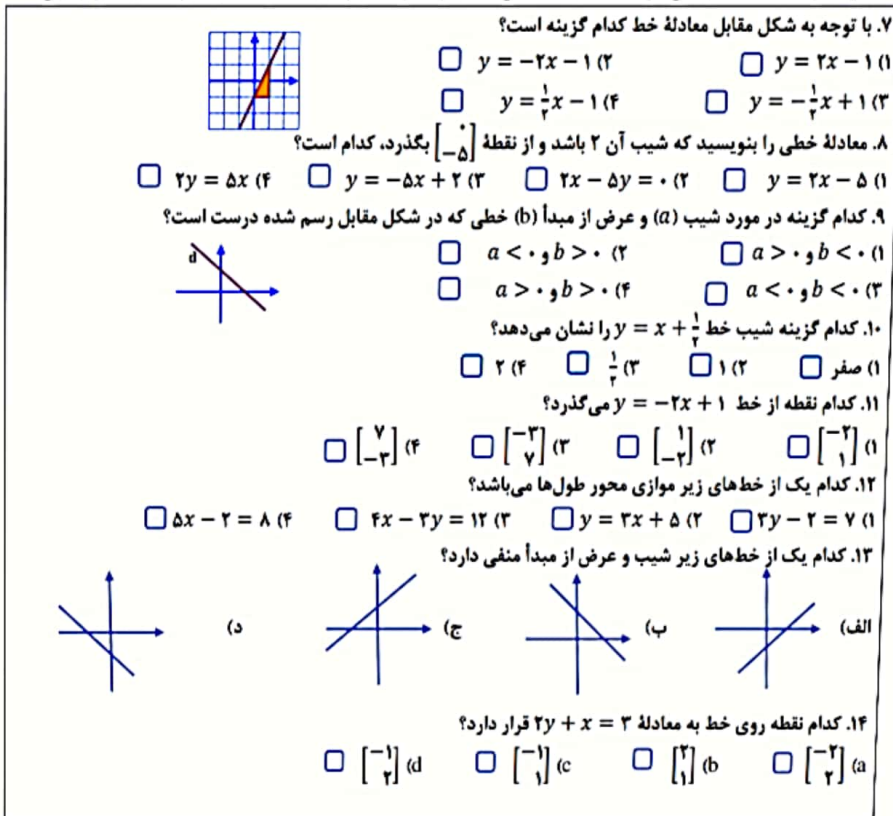 ۷. با توجه به شکل مقابل معادلهٔ خط کدام گزینه است؟
۱) y = ۲x − ۱ ۲) y = −۲x − ۱
۳) y = −۱/۲x + ۱ ۴) y = ۱/۲x − ۱
۸. معادلهٔ خطی را بنویسید که شیب آن ۲ باشد و از نقطهٔ [۰ −۵] بگذرد، کدام است؟
۱) y = ۲x − ۵ ۲) ۲x − ۵y = ۰ ۳) y = −۵x + ۲ ۴) ۲y = ۵x
۹. کدام گزینه در مورد شیب (a) و عرض از مبدأ (b) خطی که در شکل مقابل رسم شده درست است؟
d
۱) a > ۰ و b < ۰ ۲) a < ۰ و b > ۰
۳) a < ۰ و b < ۰ ۴) a > ۰ و b > ۰
۱۰. کدام گزینه شیب خط y = x + ۱/۲ را نشان می‌دهد؟
۱) صفر ۲) ۱ ۳) ۱/۲ ۴) ۲
۱۱. کدام نقطه از خط y = −۲x + ۱ می‌گذرد؟
۱) [−۲ ۱] ۲) [۱ −۲] ۳) [−۳ ۷] ۴) [۷ −۳]
۱۲. کدام یک از خط‌های زیر موازی محور طول‌ها می‌باشد؟
۱) ۳y − ۲ = ۷ ۲) y = ۳x + ۵ ۳) ۴x − ۳y = ۱۲ ۴) ۵x − ۲ = ۸
۱۳. کدام یک از خط‌های زیر شیب و عرض از مبدأ منفی دارد؟
الف) ب) ج) د)
۱۴. کدام نقطه روی خط به معادلهٔ ۲y + x = ۳ قرار دارد؟
a) [−۲ ۲] b) [۲ ۱] c) [−۱ ۱] d) [−۱ ۲]